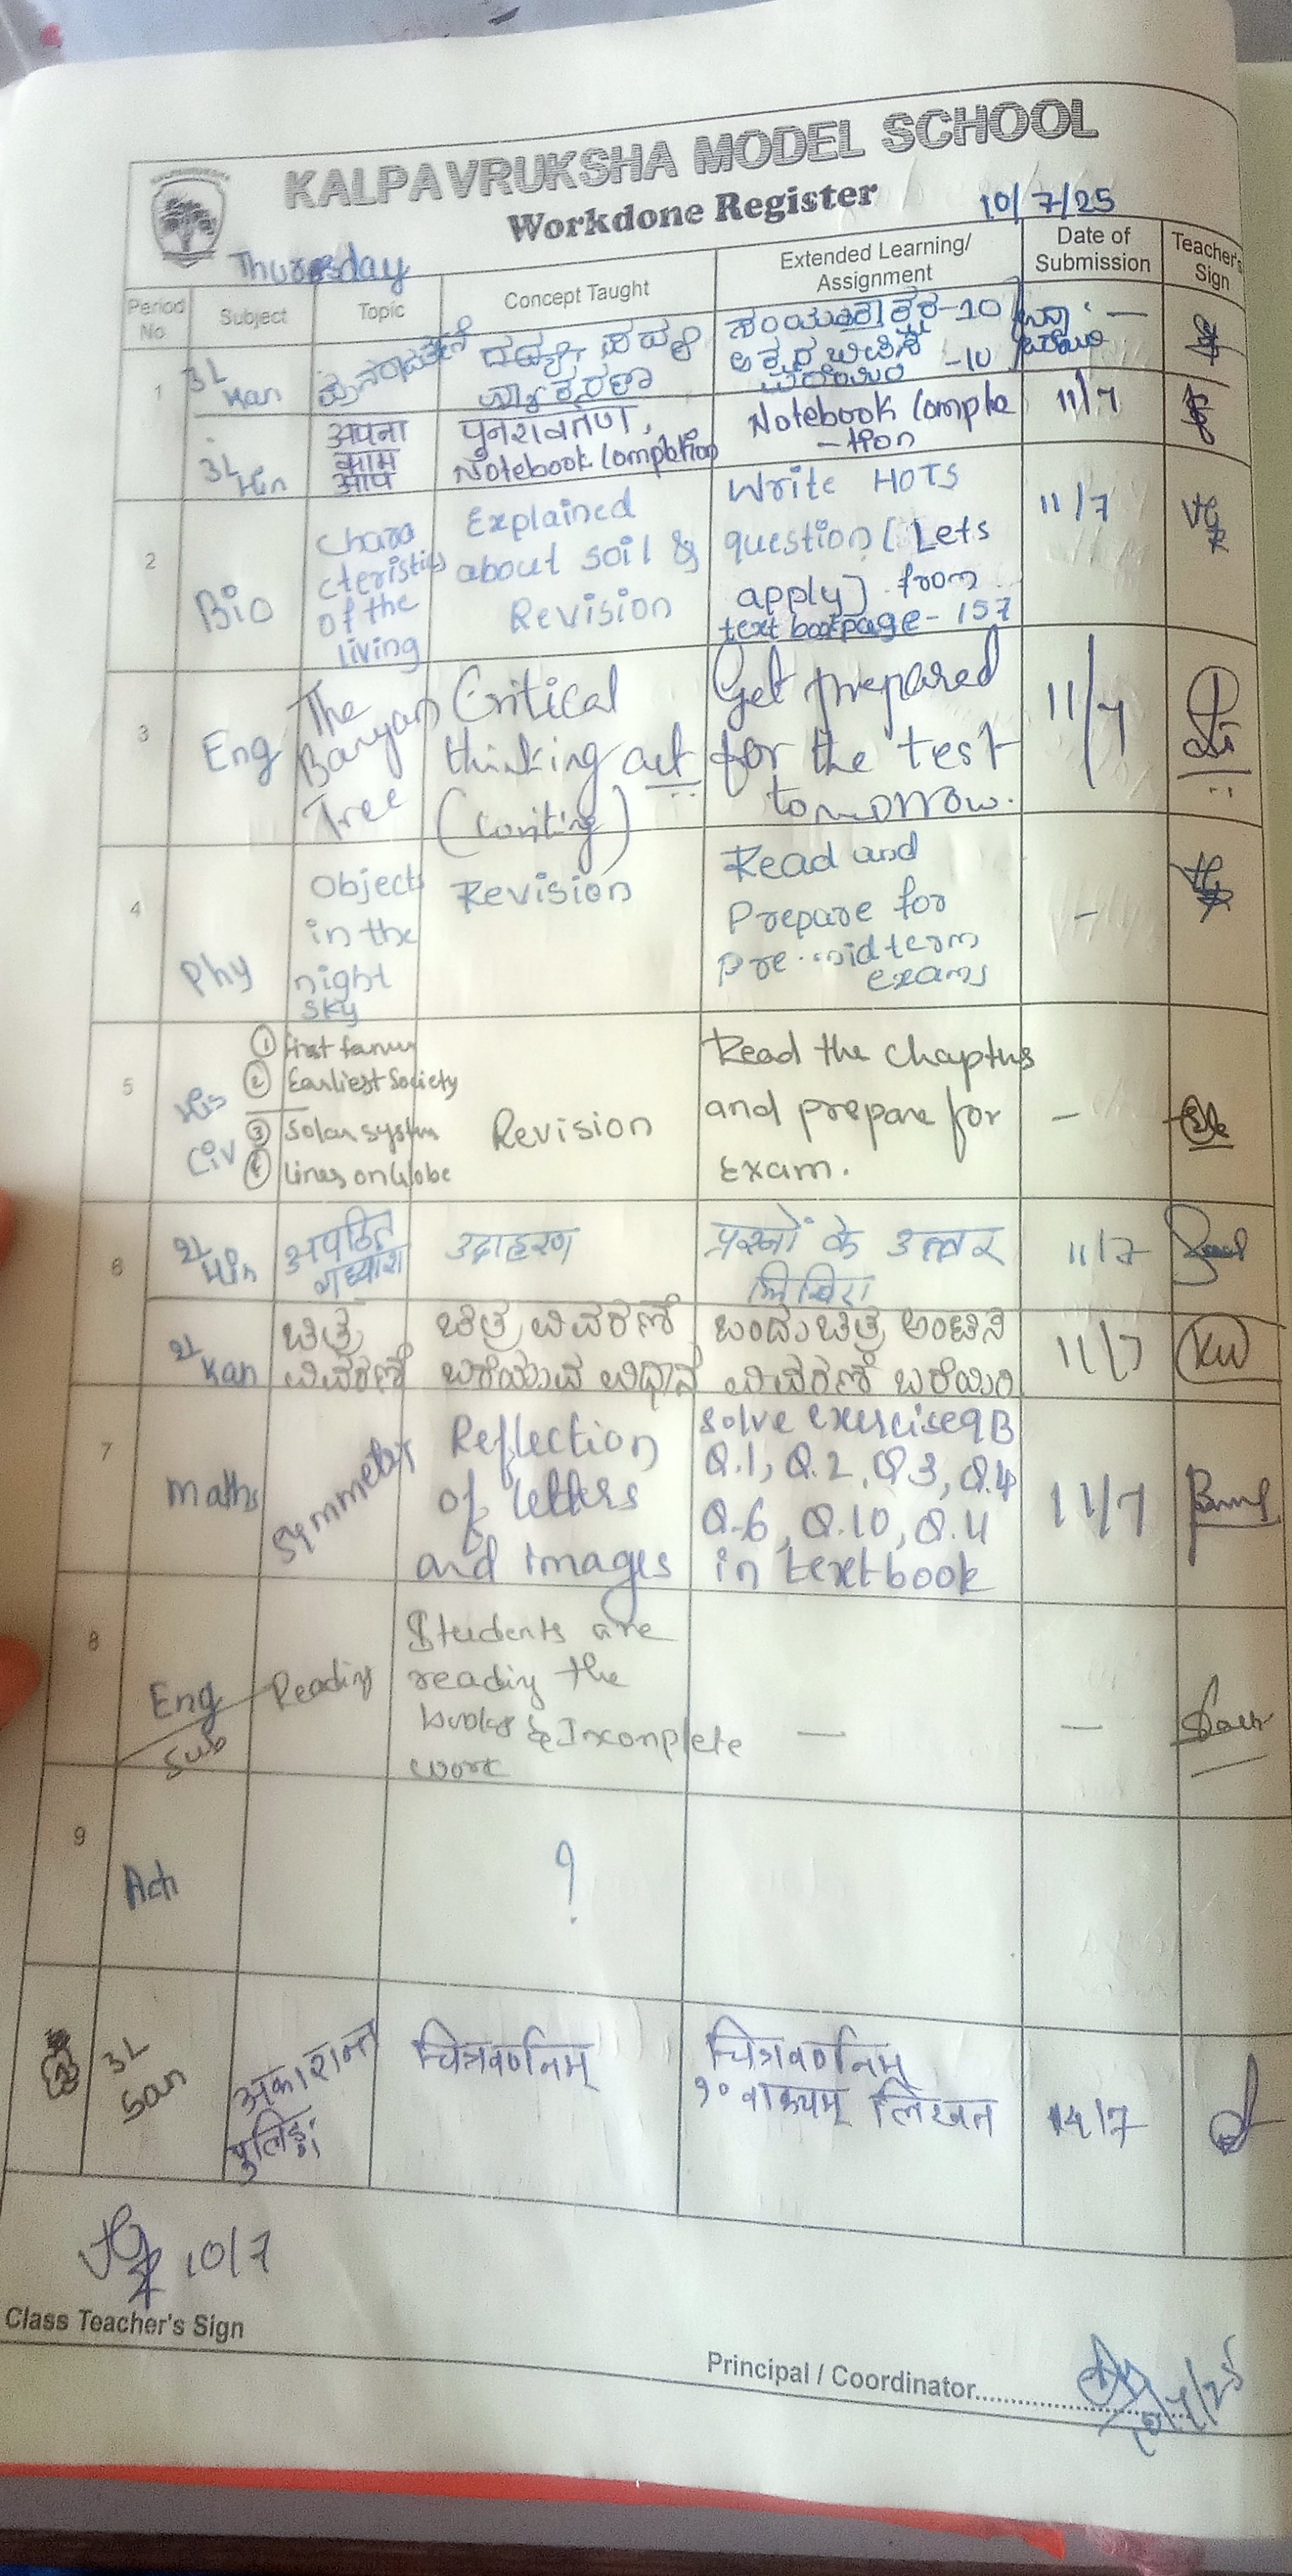 KALPAVRUKSHA MODEL SCHOOL
Workdone Register
10/7/25
Thursday
Period No.
Subject
Topic
Concept Taught
Extended Learning/ Assignment
Date of Submission
Teacher's Sign
1
3L Kan
ಸಂಯುಕ್ತಾಕ್ಷರ-10
-10
3L Hin
अपना
काम
आप
पुनरावर्तण,
Notebook Completion
Notebook Comple
-tion
11/7
2
Bio
Chara
cteristics
of the
living
Explained
about soil &
Revision
Write HOTS
question [Lets
apply] from
text book page - 157
11/7
3
Eng
The
Banyan
Tree
Critical
thinking act
(writing)
Get prepared
for the test
tomorrow.
11/7
4
Phy
Objects
in the
night
sky
Revision
Read and
Prepare for
pre-midterm
exams
-
5
His
Civ
① first farmers
② Earliest Society
③ Solar system
④ Lines on Globe
Revision
Read the chapters
and prepare for
Exam.
-
6
2L Hin
अपठित
गद्यांश
उदाहरण
प्रश्नों के उत्तर
लिखिए
11/7
2L Kan
ಚಿತ್ರ
ವಿವರಣೆ
ಚಿತ್ರ ವಿವರಣೆ
ಬರೆಯುವ ವಿಧಾನ
ಒಂದು ಚಿತ್ರ ಅಂಟಿಸಿ
ವಿವರಣೆ ಬರೆಯಿರಿ
11/7
KW
7
Maths
Symmetry
Reflection
of letters
and images
Solve exercise 9B
Q.1, Q.2, Q.3, Q.4
Q.6, Q.10, Q.11
in textbook
11/7
8
Eng
Sub
Reading
Students are
reading the
books & Incomplete
work
—
—
9
Act
?
3L
San
अकारान्त
पुलिङ्गः
चित्रवर्णनम्
चित्रवर्णनम्
१० वाक्यम् लिखत
14/7
10/7
Class Teacher's Sign
Principal / Coordinator